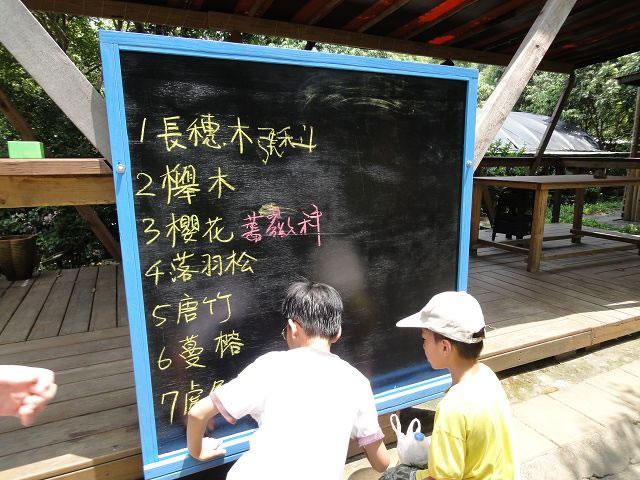 1 長穗木
2 櫸木
3 櫻花 薔薇科
4 落羽松
5 唐竹
6 蔓榕
7 虎